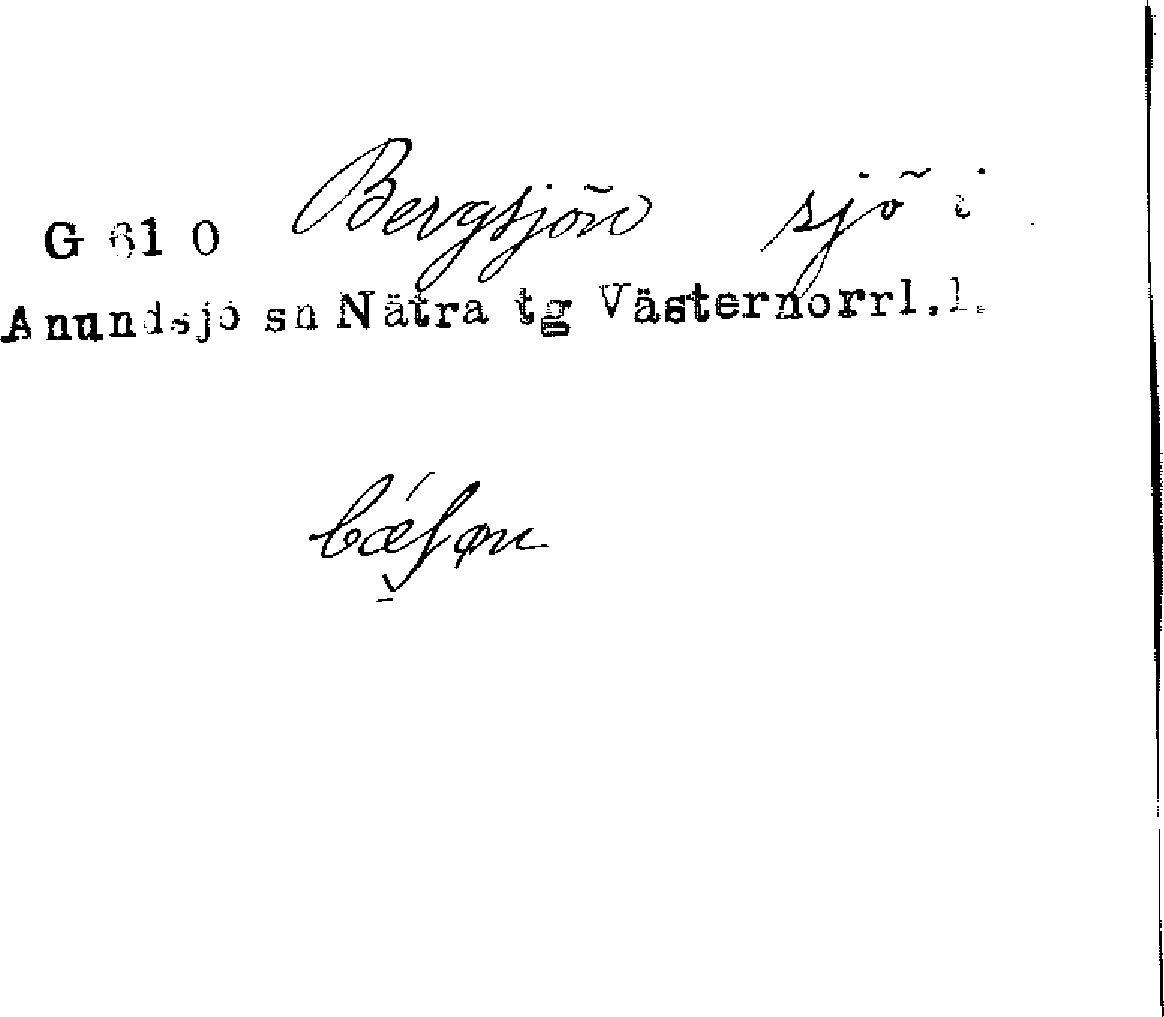 G 61 0 Bergsjön sjö i
Anundsjö sn Nätra tg Västernorrl.l.